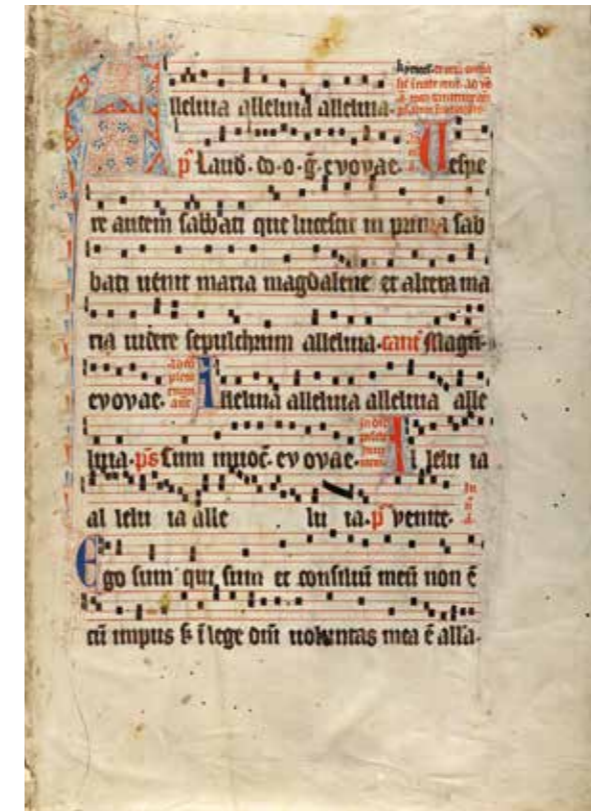 Alleluia alleluia alleluia.
p̄s Laud. d̄o. o. ḡ. evovae. Uespe
re autem sabbati que lucescit in prima sab
bati uenit maria magdalene et altera ma
ria uidere sepulchrum alleluia. cant̄ Magn̄.
evovae. Alleluia alleluia alleluia alle
luia. p̄s Cum inuoc̄. evovae. Al lelu ia
al lelu ia alle lu ia. p̄s venite.
Ego sum qui sum et consiliū meū non ē
cū impiis s̄ ī lege dn̄i uoluntas mea ē all'a.